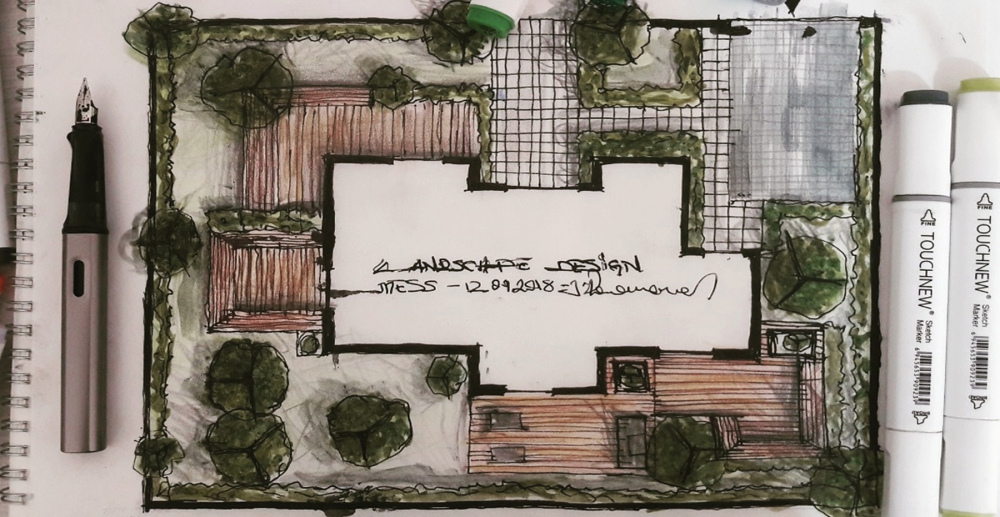 LANDSCAPE DESIGN
MESS - 12.09.2018 -
FINE
TOUCHNEW® Sketch
Marker
6945653905923
FINE
TOUCHNEW® Sketch
Marker